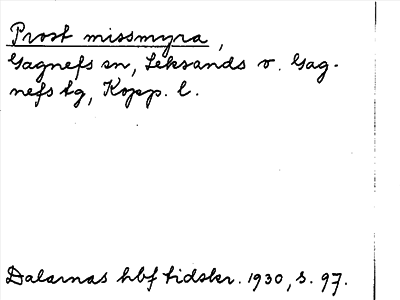 Prost missmyra,
Gagnefs sn, Leksands o. Gag-
nefs tg, Kopp. l.
Dalarnas hbf tidskr. 1930, s. 97.